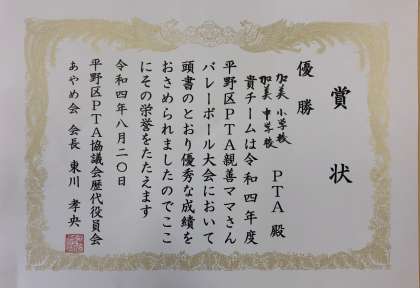 賞状
優勝
加美小学校
加美中学校
PTA殿
貴チームは令和四年度
平野区PTA親善ママさん
バレーボール大会において
頭書のとおり優秀な成績を
おさめられましたのでここ
にその栄誉をたたえます
令和四年八月二〇日
平野区PTA協議会歴代役員会
あやめ会 会長 東川 孝央